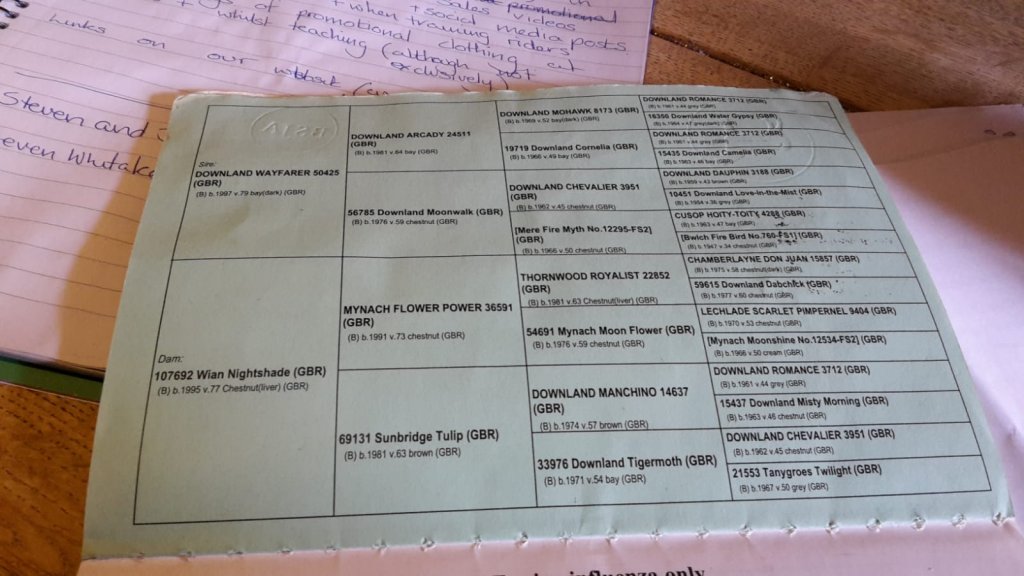 sales videos
+ social media posts
+ when training riders
of promotional clothing at
whilst teaching (although not
exclusively)
Links on our
Steven and
even Whitake
Sire:
DOWNLAND WAYFARER 50425
(GBR)
(B) b.1997 v.79 bay(dark) (GBR)
Dam:
107692 Wian Nightshade (GBR)
(B) b.1995 v.77 Chestnut(liver) (GBR)
DOWNLAND ARCADY 24511
(GBR)
(B) b.1981 v.64 bay (GBR)
56785 Downland Moonwalk (GBR)
(B) b.1976 v.59 chestnut (GBR)
MYNACH FLOWER POWER 36591
(GBR)
(B) b.1991 v.73 chestnut (GBR)
69131 Sunbridge Tulip (GBR)
(B) b.1981 v.63 brown (GBR)
DOWNLAND MOHAWK 8173 (GBR)
(B) b.1969 v.52 bay(dark) (GBR)
19719 Downland Cornelia (GBR)
(B) b.1966 v.49 bay (GBR)
DOWNLAND CHEVALIER 3951
(GBR)
(B) b.1962 v.45 chestnut (GBR)
[Mere Fire Myth No.12295-FS2]
(GBR)
(B) b.1966 v.50 chestnut (GBR)
THORNWOOD ROYALIST 22852
(GBR)
(B) b.1981 v.63 Chestnut(liver) (GBR)
54691 Mynach Moon Flower (GBR)
(B) b.1976 v.59 chestnut (GBR)
DOWNLAND MANCHINO 14637
(GBR)
(B) b.1974 v.57 brown (GBR)
33976 Downland Tigermoth (GBR)
(B) b.1971 v.54 bay (GBR)
DOWNLAND ROMANCE 3712 (GBR)
(B) b.1961 v.44 grey (GBR)
16350 Downland Water Gypsy (GBR)
(B) b.1964 v.47 grey(dark) (GBR)
DOWNLAND ROMANCE 3712 (GBR)
(B) b.1961 v.44 grey (GBR)
15435 Downland Camelia (GBR)
(B) b.1963 v.46 bay (GBR)
DOWNLAND DAUPHIN 3188 (GBR)
(B) b.1959 v.43 brown (GBR)
10451 Downland Love-in-the-Mist (GBR)
(B) b.1954 v.36 grey (GBR)
CUSOP HOITY-TOITY 4288 (GBR)
(B) b.1963 v.47 bay (GBR)
[Bwlch Fire Bird No.760-FS1] (GBR)
(B) b.1947 v.34 chestnut (GBR)
CHAMBERLAYNE DON JUAN 15857 (GBR)
(B) b.1975 v.58 chestnut(dark) (GBR)
59615 Downland Dabchick (GBR)
(B) b.1977 v.60 chestnut (GBR)
LECHLADE SCARLET PIMPERNEL 9404 (GBR)
(B) b.1970 v.53 chestnut (GBR)
[Mynach Moonshine No.12534-FS2] (GBR)
(B) b.1966 v.50 cream (GBR)
DOWNLAND ROMANCE 3712 (GBR)
(B) b.1961 v.44 grey (GBR)
15437 Downland Misty Morning (GBR)
(B) b.1963 v.46 chestnut (GBR)
DOWNLAND CHEVALIER 3951 (GBR)
(B) b.1962 v.45 chestnut (GBR)
21553 Tanygroes Twilight (GBR)
(B) b.1967 v.50 grey (GBR)
influenza only